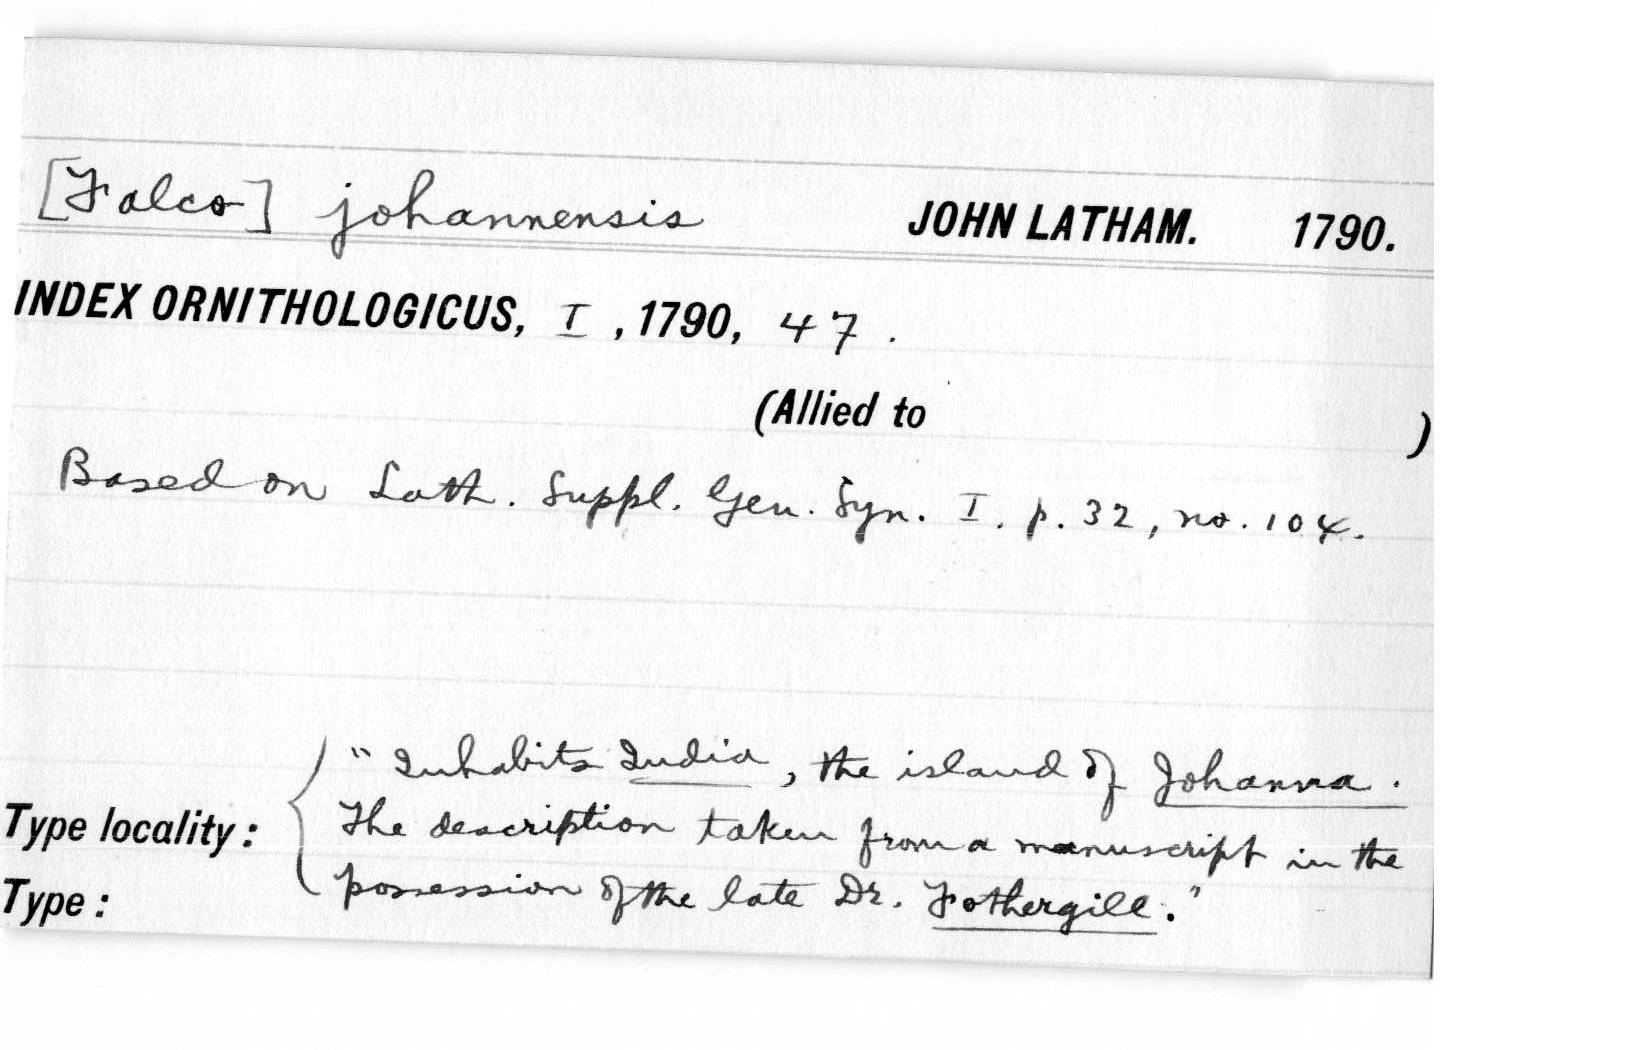 [Falco] johannensis JOHN LATHAM. 1790.
INDEX ORNITHOLOGICUS, I, 1790, 47.
(Allied to )
Based on Lath. Suppl. Gen. Syn. I. p. 32, no. 104.
"Inhabits India, the island of Johanna.
Type locality: The description taken from a manuscript in the
Type: possession of the late Dr. Fothergill."